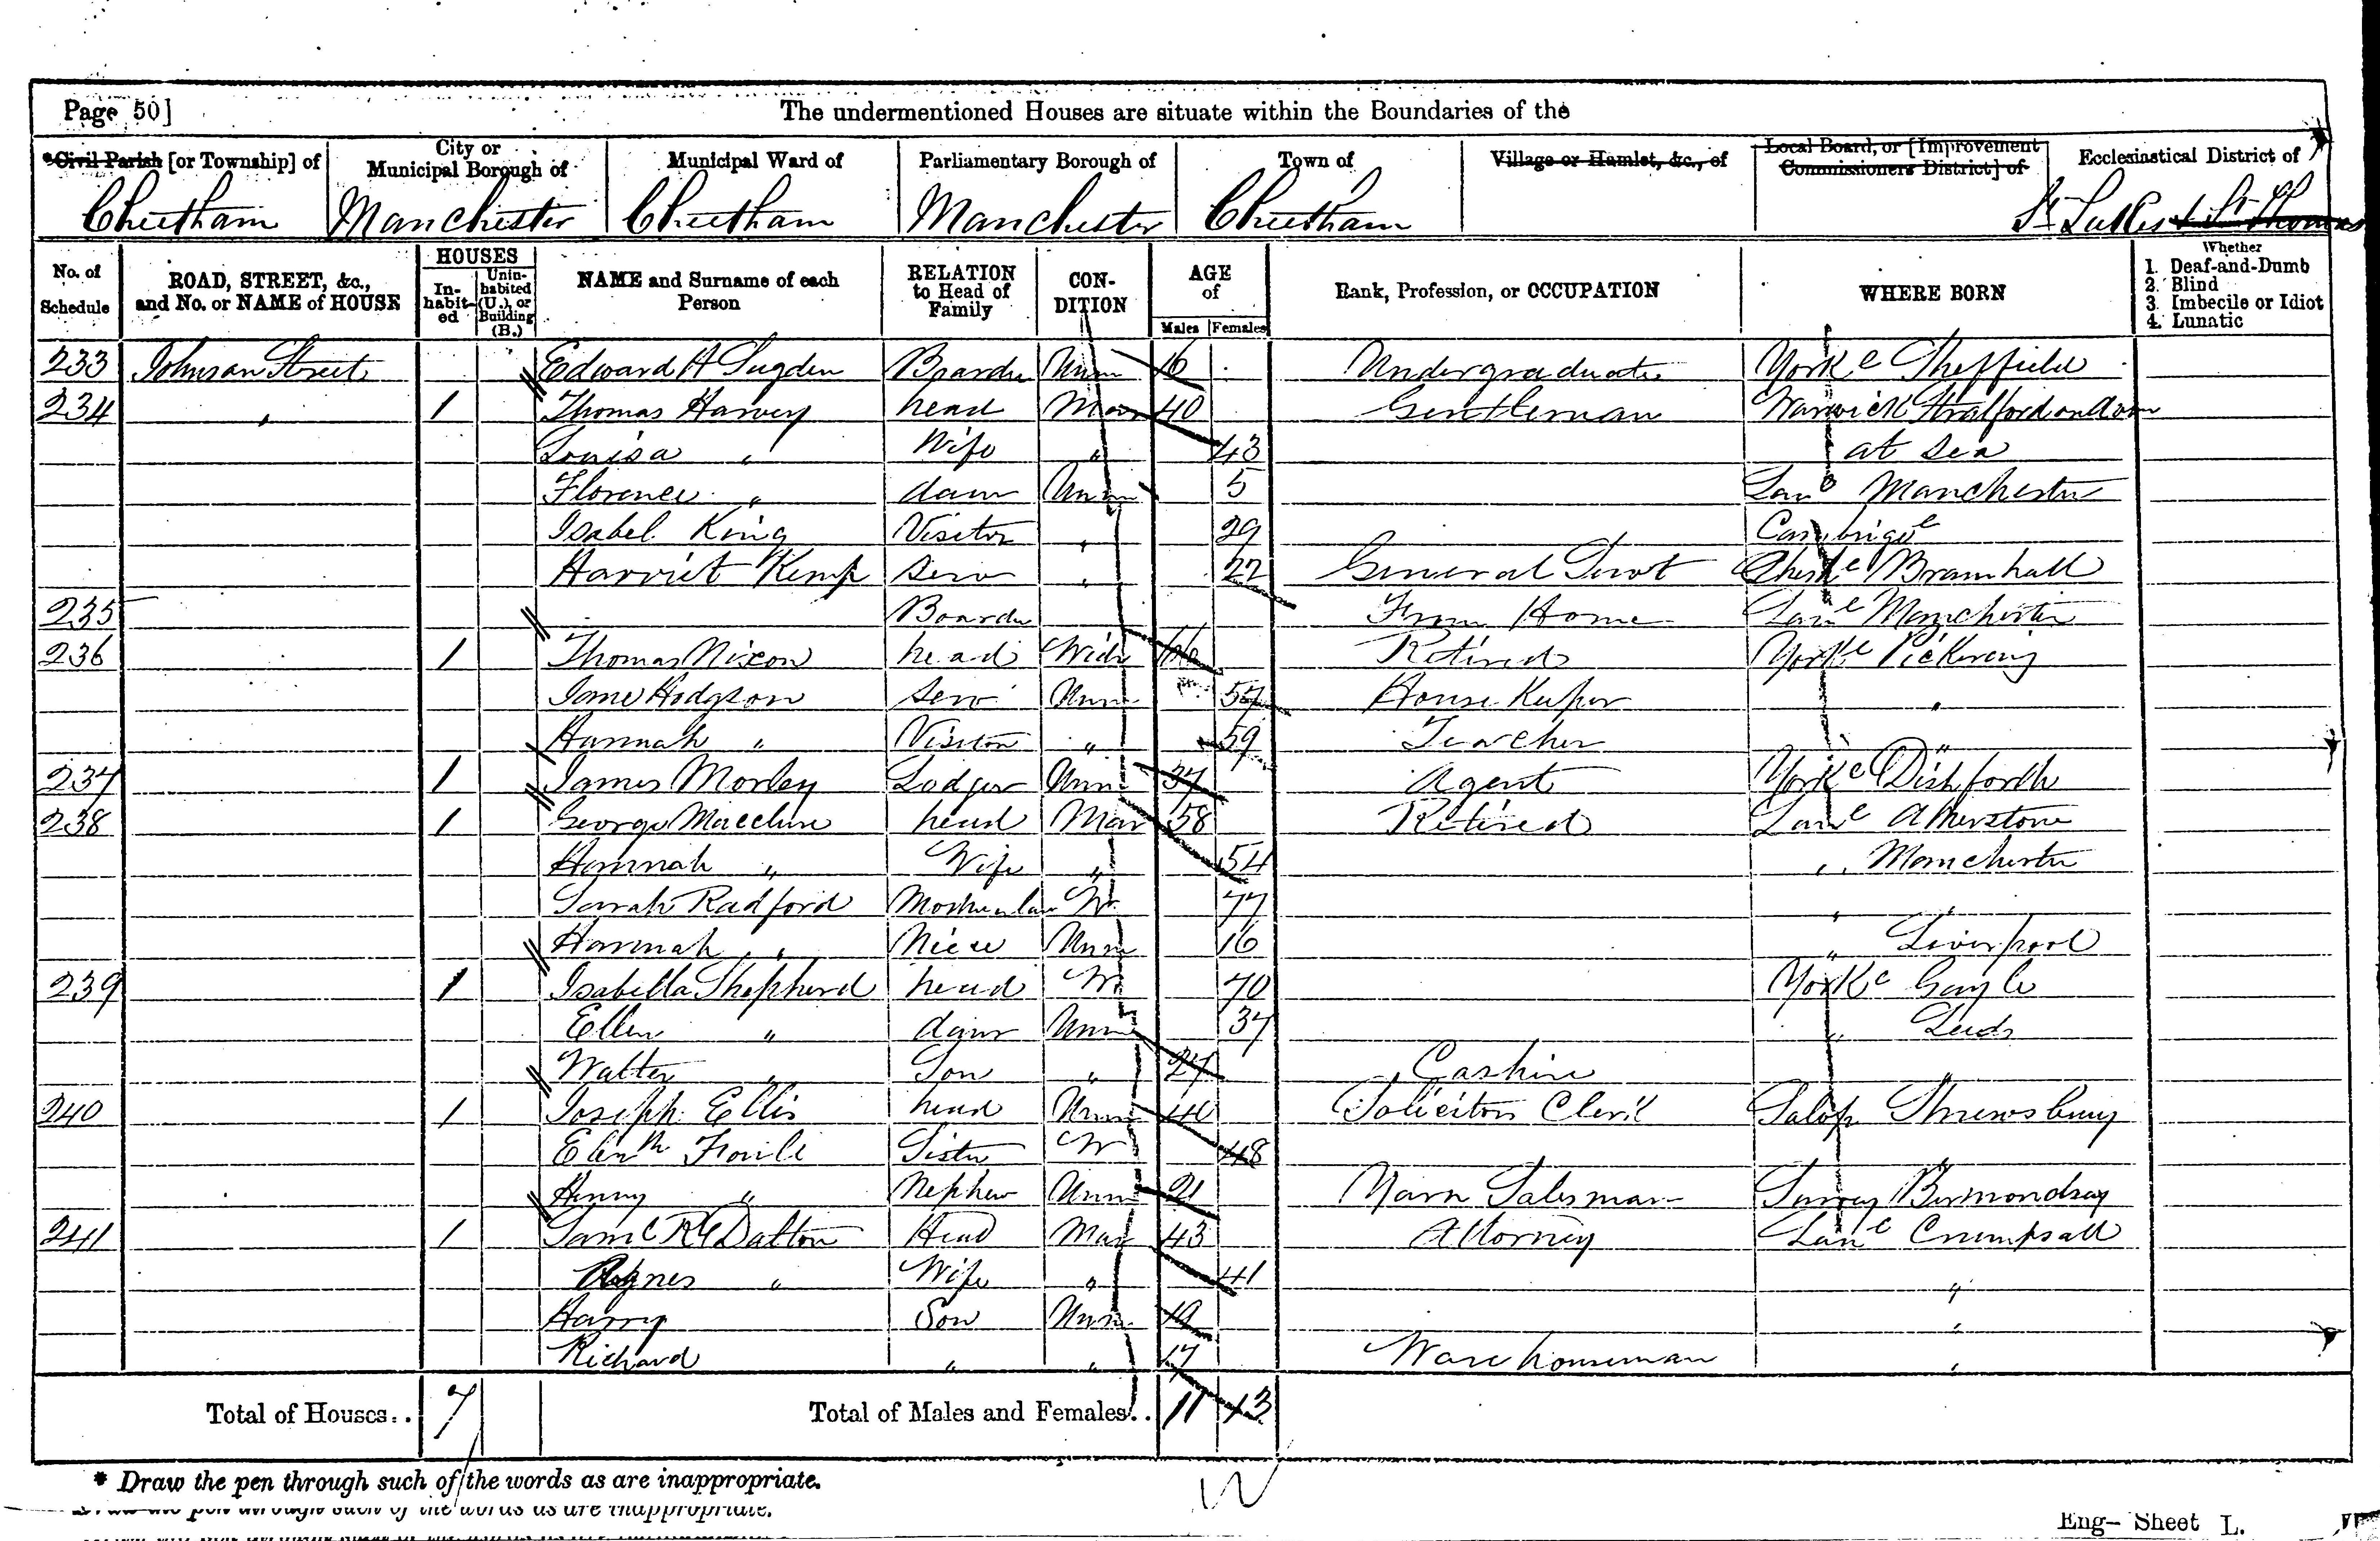 Page 50]
The undermentioned Houses are situate within the Boundaries of the
*Civil Parish [or Township] of City or Municipal Borough of Municipal Ward of Parliamentary Borough of Town of Village or Hamlet, &c., of Local Board, or [Improvement Commissioners District] of Ecclesiastical District of
Cheetham Manchester Cheetham Manchester Cheetham St Lukes & St Thomas
No. of Schedule ROAD, STREET, &c., and No. or NAME of HOUSE HOUSES Inhabited Uninhabited (U.), or Building (B.) NAME and Surname of each Person RELATION to Head of Family CONDITION AGE of Males Females Rank, Profession, or OCCUPATION WHERE BORN Whether 1. Deaf-and-Dumb 2. Blind 3. Imbecile or Idiot 4. Lunatic
233 Johnson Street Edward A Sugden Boarder Unm 16 Undergraduate York c Sheffield
234 " 1 Thomas Harvey head Mar 40 Gentleman Warwick Stratford on Avon
Louisa " Wife " 43 at sea
Florence " daur Unm 5 Lanc Manchester
Isabel King Visitor " 29 Cambrige
Harriet Kemp Serv " 22 General Servt Bramhall
235 Boarder From Home Lanc Manchester
236 1 Thomas Nixon head Widr Retired York c Pickering
Jane Hodgson Serv Unm 57 House Keeper "
Hannah " Visitor " 59 Teacher "
237 1 James Morley Lodger Unm 37 Agent York c Dishforth
238 1 George Macclure head Mar 58 Retired Lanc Atherstone
Hannah " Wife " 54 " Manchester
Sarah Radford W 77 " "
Hannah " Niece Unm 16 " Liverpool
239 1 Isabella Shepherd head W 70 York c Gayle
Ellen " daur Unm 37 " Leeds
Walter " Son " 27 Cashire "
240 1 Joseph Ellis head Unm 40 Solicitors Clerk Salop Shrewsbury
Sister W 48 "
Henry " Nephew Unm 21 Yarn Salesman Surrey Bermondsey
241 1 Dalton Head Mar 43 Attorney Lanc Crumpsall
Agnes " Wife " 41 "
Harry Son Unm 19 "
Richard " " 17 Warehouseman "
Total of Houses.. 7 Total of Males and Females.. 11 13
* Draw the pen through such of the words as are inappropriate.
Eng— Sheet L.